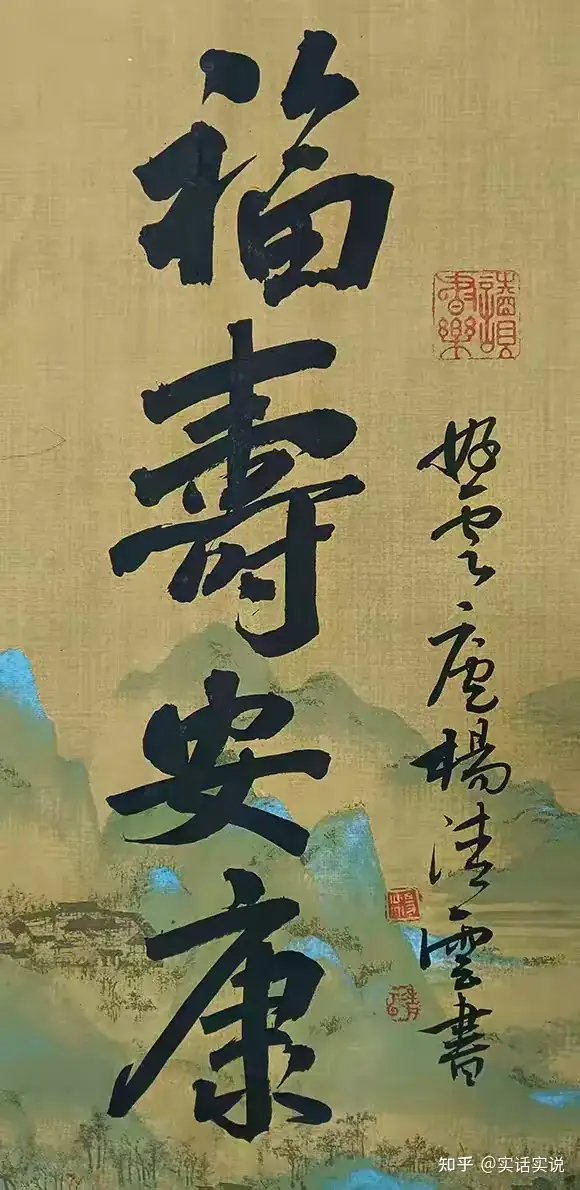 福壽安康
楊清雲書
知乎 @实话实说